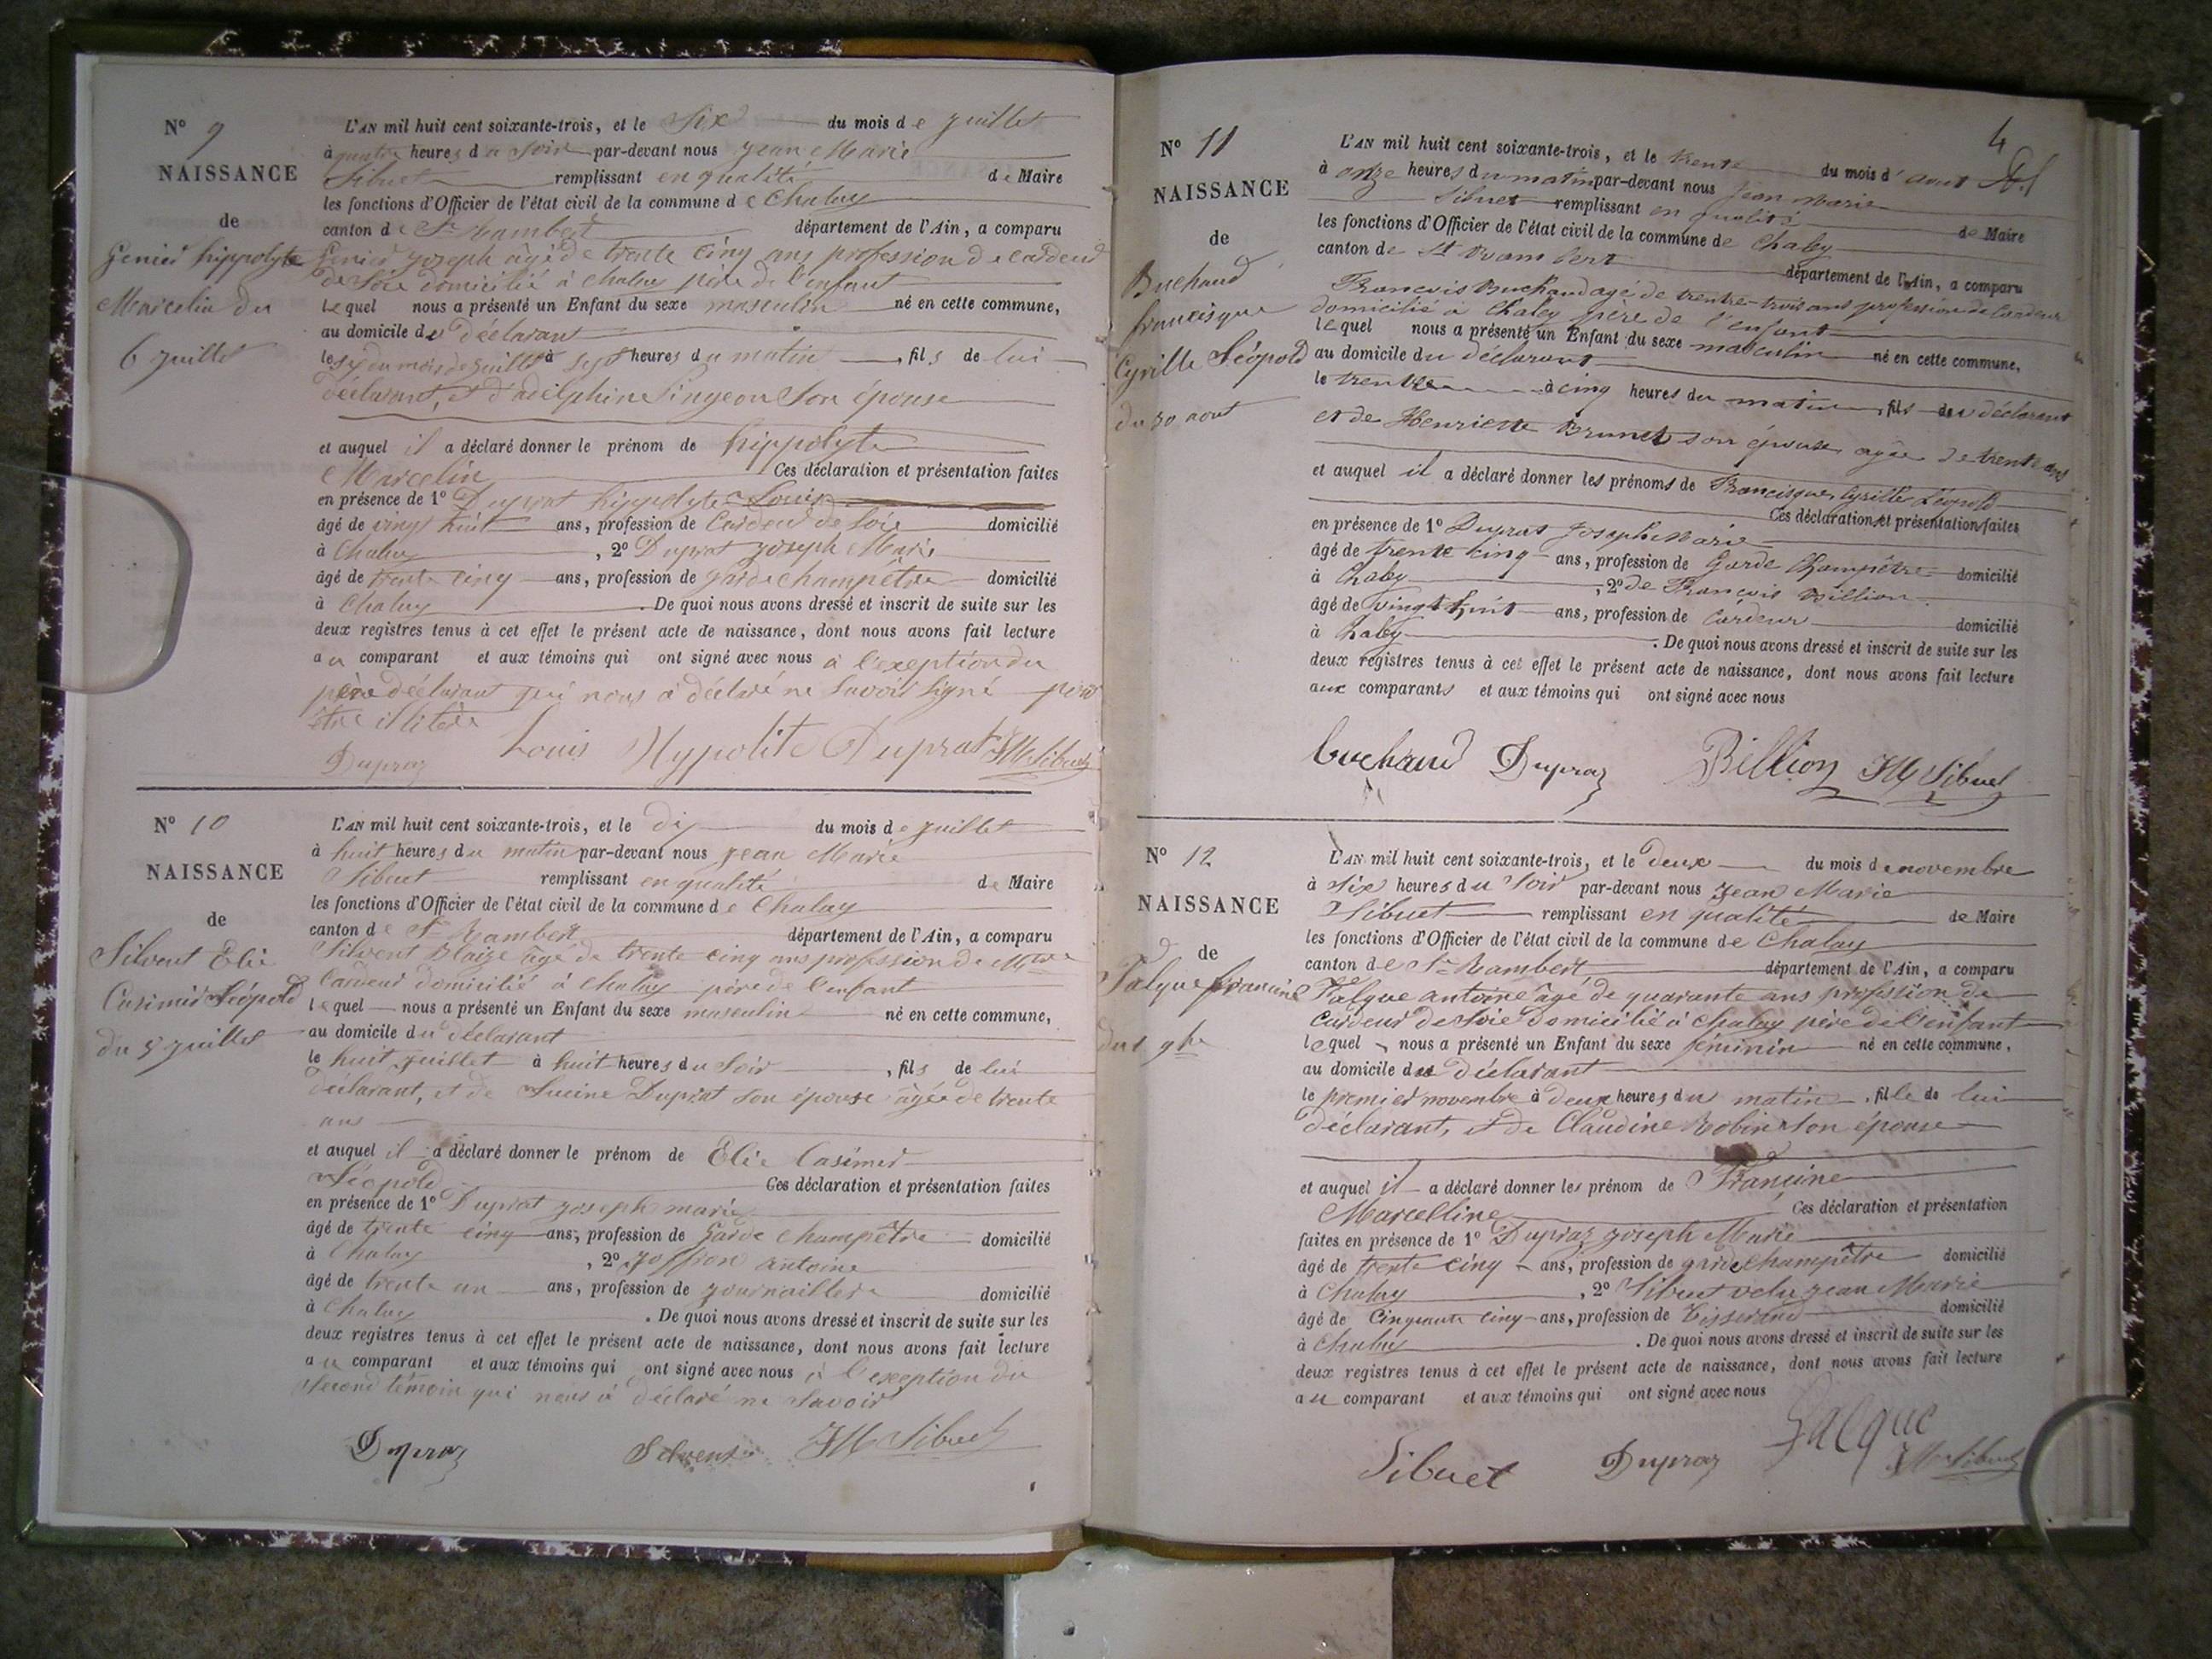 N° 9
NAISSANCE
de
Genier hippolyte
Marcelin du
6 juillet
L'AN mil huit cent soixante-trois, et le Six du mois de juillet
à quatre heures du Soir par-devant nous Jean Marie
Sibuet remplissant en qualité de Maire
les fonctions d'Officier de l'état civil de la commune de Chaley
canton de St Rambert département de l'Ain, a comparu
Genier joseph âgé de trente cinq ans profession de cardeur
de Soie domicilié à chaley père de l'enfant
lequel nous a présenté un Enfant du sexe masculin né en cette commune,
au domicile du déclarant
le six du mois de juillet à sept heures du matin, fils de lui
déclarant, et d'adelphine Singeon Son épouse
et auquel il a déclaré donner le prénom de hippolyte
Marcelin Ces déclaration et présentation faites
en présence de 1° Duprat hippolyte Louis
âgé de vingt huit ans, profession de Cardeur de Soie domicilié
à Chaley, 2° Duprat joseph Marie
âgé de trente cinq ans, profession de garde champêtre domicilié
à Chaley. De quoi nous avons dressé et inscrit de suite sur les
deux registres tenus à cet effet le présent acte de naissance, dont nous avons fait lecture
au comparant et aux témoins qui ont signé avec nous à l'exeption du
père déclarant qui nous a déclaré ne Savoir Signé pour
être illitéré
Dupraz Louis Hypolite Duprat JM Sibuet
N° 10
NAISSANCE
de
Silvent Elie
Casimir Léopold
du 8 juillet
L'AN mil huit cent soixante-trois, et le dix du mois de juillet
à huit heures du matin par-devant nous Jean Marie
Sibuet remplissant en qualité de Maire
les fonctions d'Officier de l'état civil de la commune de Chaley
canton de St Rambert département de l'Ain, a comparu
Silvent Blaize âgé de trente cinq ans profession de Mtre
Cardeur domicilié à Chaley père de l'enfant
lequel nous a présenté un Enfant du sexe masculin né en cette commune,
au domicile du déclarant
le huit juillet à huit heures du Soir, fils de lui
déclarant, et de Lucine Duprat Son épouse âgée de trente
ans
et auquel il a déclaré donner le prénom de Elie Casimir
Léopold Ces déclaration et présentation faites
en présence de 1° Duprat joseph marie
âgé de trente cinq ans, profession de Garde Champêtre domicilié
à Chaley, 2° antoine
âgé de trente un ans, profession de journaillier domicilié
à Chaley. De quoi nous avons dressé et inscrit de suite sur les
deux registres tenus à cet effet le présent acte de naissance, dont nous avons fait lecture
au comparant et aux témoins qui ont signé avec nous à l'exeption du
Second témoin qui nous à déclaré ne Savoir
Dupraz Silvent JM Sibuet
4
N° 11
NAISSANCE
de
Buchaud
francisque
Cyrille Léopold
du 30 aout
L'AN mil huit cent soixante-trois, et le trente du mois d'aout
à onze heures du matin par-devant nous Jean Marie
Sibuet remplissant en qualité de Maire
les fonctions d'Officier de l'état civil de la commune de Chaley
canton de St Rambert département de l'Ain, a comparu
Francois Buchaud agé de trente-trois ans profession de Cardeur
domicilié à Chaley père de l'enfant
lequel nous a présenté un Enfant du sexe masculin né en cette commune,
au domicile du déclarant
le trente à cinq heures du matin, fils du déclarant
et de Henriette Brunet son épouse agée de trente ans
et auquel il a déclaré donner les prénoms de Francisque Cyrille Léopold
Ces déclaration et présentation faites
en présence de 1° Duprat joseph Marie
âgé de trente cinq ans, profession de Garde Champêtre domicilié
à Chaley, 2° de François Billion
âgé de vingt huit ans, profession de Cardeur domicilié
à Chaley. De quoi nous avons dressé et inscrit de suite sur les
deux registres tenus à cet effet le présent acte de naissance, dont nous avons fait lecture
aux comparants et aux témoins qui ont signé avec nous
buchaud Dupraz Billion JM Sibuet
N° 12
NAISSANCE
de
Falque francine
du 1 9bre
L'AN mil huit cent soixante-trois, et le deux du mois de novembre
à Six heures du Soir par-devant nous Jean Marie
Sibuet remplissant en qualité de Maire
les fonctions d'Officier de l'état civil de la commune de Chaley
canton de St Rambert département de l'Ain, a comparu
Falque antoine âgé de quarante ans profession de
Cardeur de Soie domicilié à chaley père de l'enfant
lequel nous a présenté un Enfant du sexe féminin né en cette commune,
au domicile du déclarant
le premier novembre à deux heures du matin, fille de lui
déclarant, et de Claudine Robin Son épouse
et auquel il a déclaré donner les prénom de Francine
Marcelline Ces déclaration et présentation
faites en présence de 1° Dupraz joseph Marie
âgé de trente cinq ans, profession de garde champêtre domicilié
à Chaley, 2° Sibuet jean Marie
âgé de Cinquante cinq ans, profession de Tisserand domicilié
à Chaley. De quoi nous avons dressé et inscrit de suite sur les
deux registres tenus à cet effet le présent acte de naissance, dont nous avons fait lecture
au comparant et aux témoins qui ont signé avec nous
Sibuet Dupraz Falque JM Sibuet